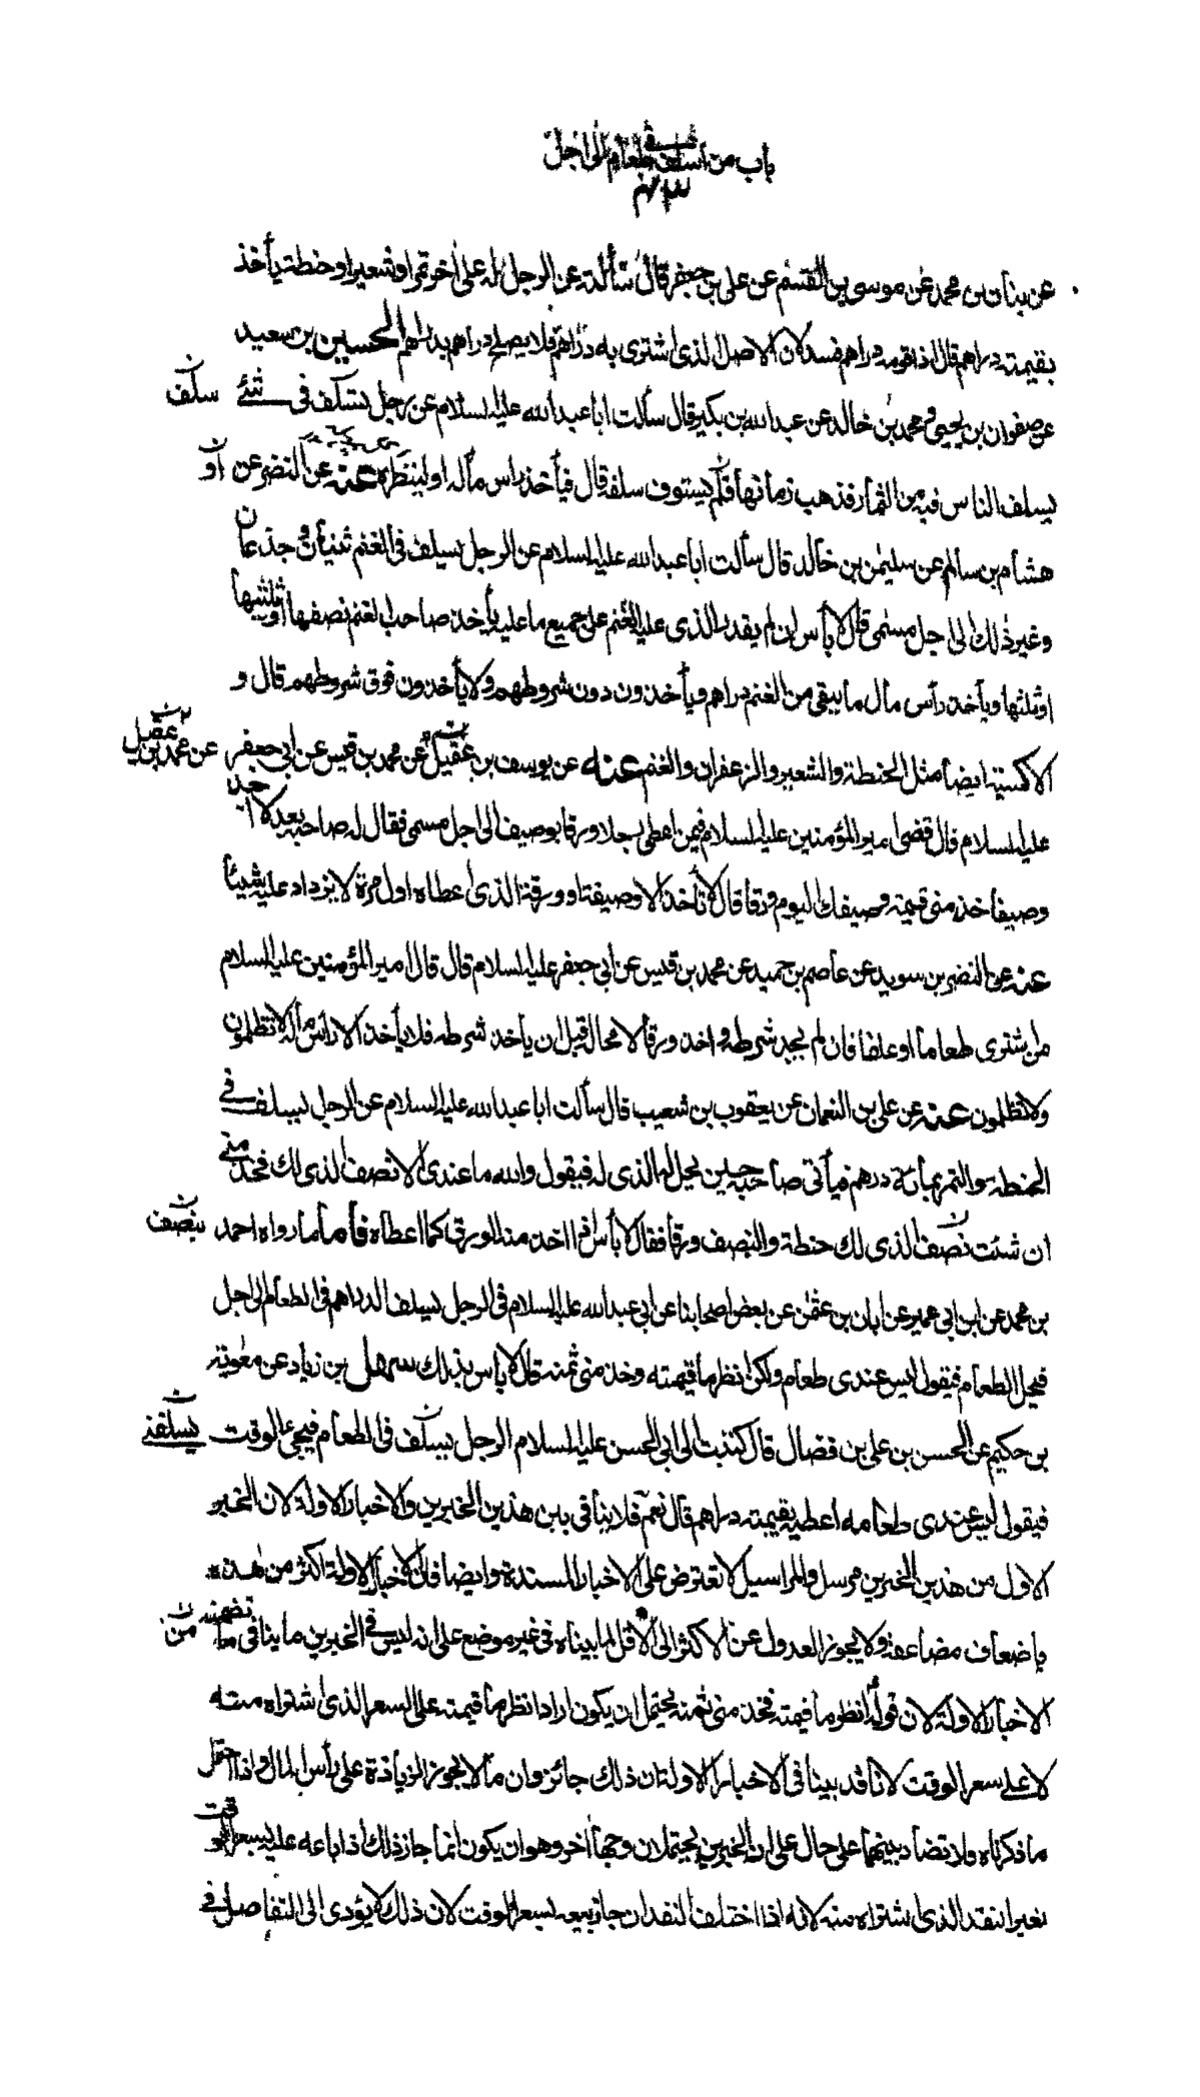 باب من اسلف في طعام الى اجل
عن بنان بن محمد عن موسى بن القسم عن علي بن جعفر قال سألته عن الرجل له على اخر تمر او شعير او حنطة يأخذ
بقيمته دراهم قال اذا قومه دراهم فسد لان الاصل الذي اشترى به دراهم فلا يصلح دراهم بدراهم الحسين بن سعيد
عن صفوان بن يحيى و محمد بن خالد عن عبد الله بن بكير قال سألت ابا عبد الله عليه السلام عن رجل تسلف في شئ سلف
يسلف الناس فيه من الثمار فذهب زمانها فلم يستوف سلفه قال فيأخذ رأس ماله او لينظره عنه عن النضر عن او
هشام بن سالم عن سليمن بن خالد قال سألت ابا عبد الله عليه السلام عن الرجل يسلف في الغنم ثنيان و جذعان
وغير ذلك الى اجل مسمى قال لا بأس ان لم يقدر الذي عليه الغنم على جميع ما عليه يأخذ صاحب الغنم نصفها او ثلثيها
او ثلثها و يأخذ رأس مال ما يبقى من الغنم دراهم و يأخذون دون شروطهم ولا يأخذون فوق شروطهم قال و
الاكسية ايضا مثل الحنطة والشعير والزعفران والغنم عنه عن يوسف بن عقيل عن محمد بن قيس عن ابي جعفر عن محمد بن عقيل
عليه السلام قال قضى امير المؤمنين عليه السلام فيمن اعطى رجلا ورقا بوصيف الى اجل مسمى فقال له صاحبه بعد لا اجد
وصيفا خذ مني قيمة وصيفك اليوم ورقا قال لا تأخذ الا وصيفه او ورقه الذي اعطاه اول مرة لا يزداد عليه شيئا
عنه عن النضر بن سويد عن عاصم بن حميد عن محمد بن قيس عن ابي جعفر عليه السلام قال قال امير المؤمنين عليه السلام
من اشترى طعاما او علفا فان لم يجد شرطه و اخذ ورقا لا محالة قبل ان يأخذ شرطه فلا يأخذ الا رأس ماله لا تظلمون
ولا تظلمون عنه عن علي بن النعمان عن يعقوب بن شعيب قال سألت ابا عبد الله عليه السلام عن الرجل يسلف في
الحنطة والتمر بمأة درهم فيأتي صاحبه حين يحل له الذي له فيقول والله ما عندي الا نصف الذي لك فخذ مني
ان شئت نصف الذي لك حنطة والنصف ورقا فقال لا بأس اذا اخذ منه الورق كما اعطاه فأما ما رواه احمد بنصف
بن محمد عن ابن ابي عمير عن ابان بن عثمن عن بعض اصحابنا عن ابي عبد الله عليه السلام في الرجل يسلف الدراهم في الطعام الى اجل
فيحل الطعام فيقول ليس عندي طعام ولكن انظر ما قيمته وخذ مني ثمنه قال لا بأس بذلك سهل بن زياد عن معوية
بن حكيم عن الحسن بن علي بن فضال قال كتبت الى ابي الحسن عليه السلام الرجل يسلف في الطعام فيجئ الوقت يسلفني
فيقول ليس عندي طعامه اعطيه بقيمته دراهم قال نعم فلا ينافي بين هذين الخبرين والاخبار الاولة لان الخبر
الاول من هذين الخبرين مرسل والمراسيل لا تعترض على الاخبار المسندة وايضا فان الاخبار الاولة اكثر من هذه
باضعاف مضاعفة ولا يجوز العدول عن الاكثر الى الاقل لما بيناه في غير موضع على انه ليس في الخبرين ما ينافي ما تضمنته من
الاخبار الاولة لان قوله انظر ما قيمته فخذ مني ثمنه يحتمل ان يكون اراد انظر ما قيمته على السعر الذي اشتراه منه
لا على سعر الوقت لانا قد بينا في الاخبار الاولة ان ذلك جائز وان ما لا يجوز الزيادة على رأس المال و اذا احتمل
ما ذكرناه فلا تضاد بينهما على حال على ان الخبرين يحتملان وجها اخر وهو ان يكون انما جاز ذلك اذا باعه عليه بسعر الوقت
بغير النقد الذي اشتراه منه لانه اذا اختلف النقدان جاز بيعه بسعر الوقت لان ذلك لا يؤدي الى التفاضل في